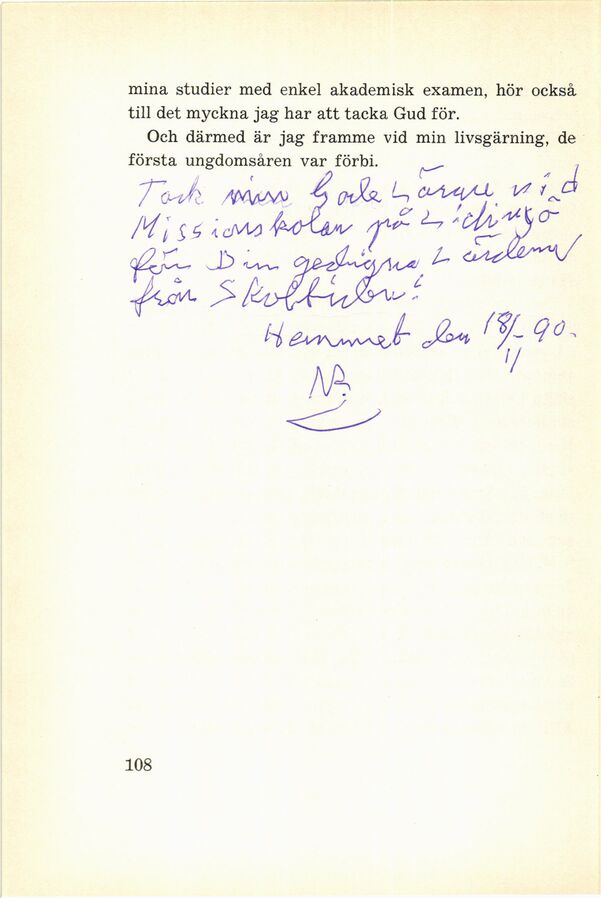 mina studier med enkel akademisk examen, hör också
till det myckna jag har att tacka Gud för.
Och därmed är jag framme vid min livsgärning, de
första ungdomsåren var förbi.
Tack min Gode Lärare vid
Missionskolan på Lidingö
för Din gedigna Lärdom
från Skoltiden!
Hemmet den 18/11-90.
108